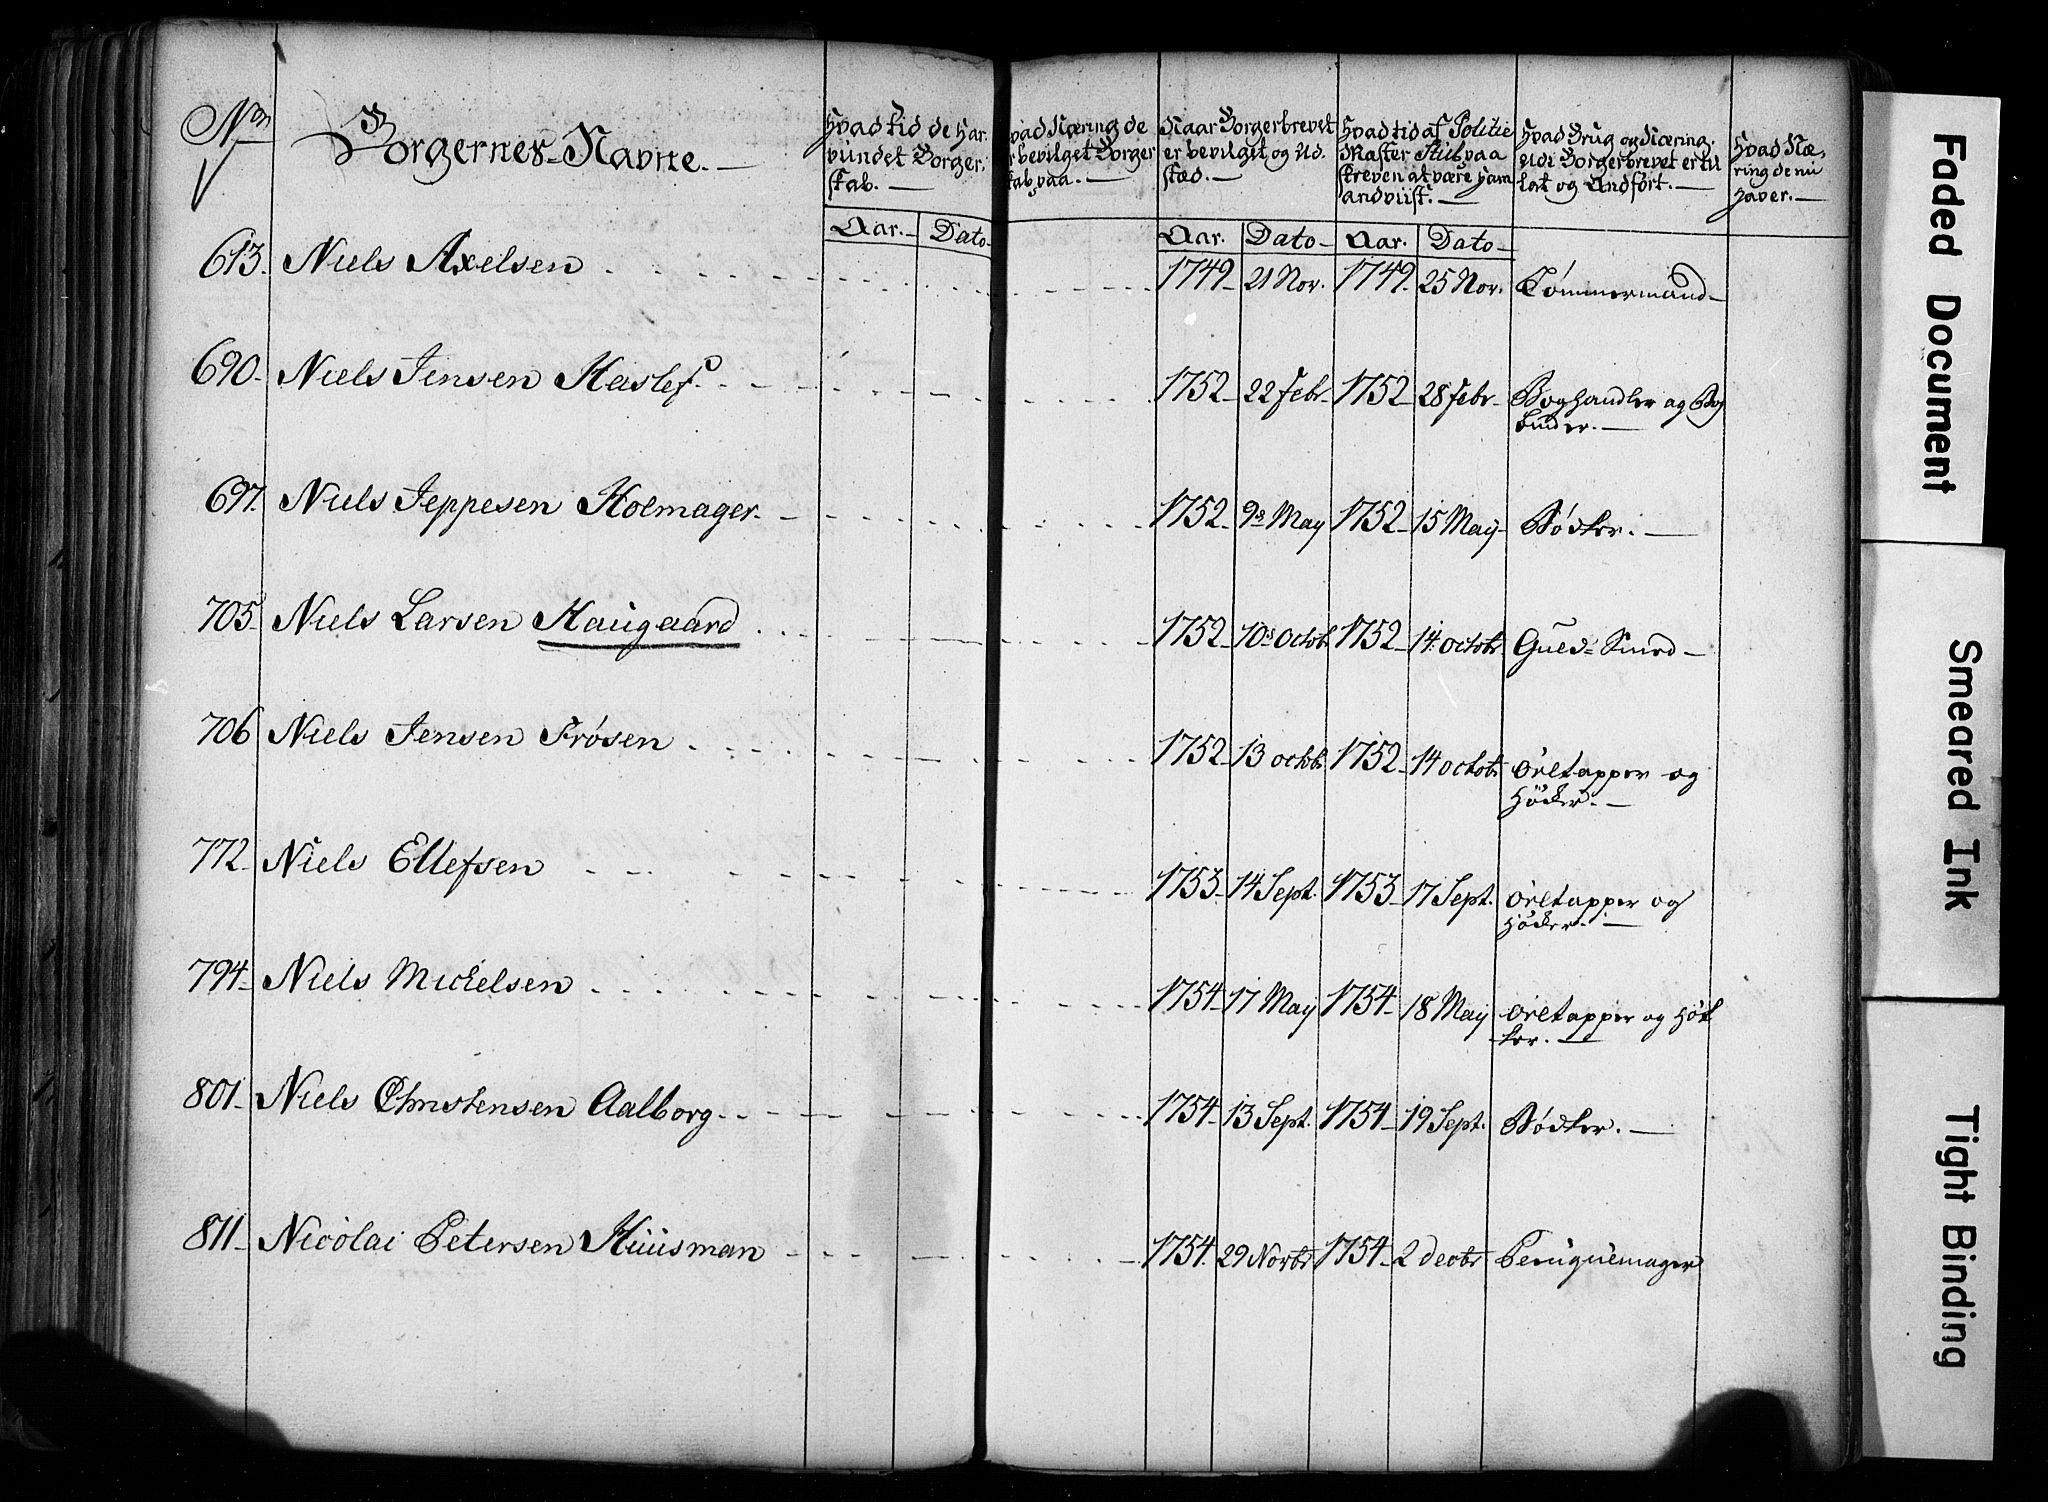 No
Borgernes Navne.
Hvad tid de har vundet Borgerskab.
Hvad Næring de er bevilget Borgerskab paa.
Naar Borgerbrevet er bevilget og Udstæd.
Hvad tid af Politie Mæster Stub paa skreven at være ham andviist.
Hvad Brug og Næring Udi Borgerbrevet er til lat og Andført.
Hvad Næring de nu haver.
Aar. Dato Aar. Dato Aar. Dato
613. Niels Axelsen 1749 21 Nov. 1749. 25 Nov. Tømmermand
690. Niels Jensen Haslef 1752 22 Febr. 1752 28 Febr. Boghandler og Bog
binder.
697. Niels Jeppesen Holmager 1752 9de May 1752 15 May Bødker.
705 Niels Larsen Haugaard 1752 10de Octob. 1752 14 octobr Guld-Smed
706 Niels Jensen Frøsen 1752 13 octb. 1752 14 octobr Øletapper og
Høcker.
772 Niels Ellefsen 1753 14 Sept. 1753 17 Sept. Øletapper og
Høcker.
794 Niels Mickelsen 1754 17 May 1754 18 May Øletapper og Høk
ker.
801 Niels Christensen Aalborg 1754 13 Sept. 1754 19 Sept. Bødker.
811 Nicolai Petersen Huusman 1754. 29 Novbr 1754 2 decbr Peruquemager
Faded Document
Smeared Ink
Tight Binding